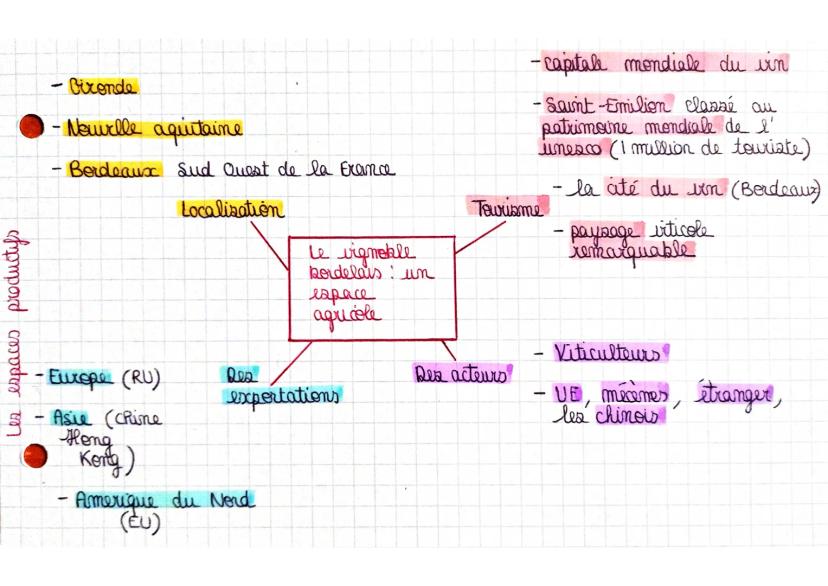 Les espaces productifs
- Gironde
- Nouvelle aquitaine
- Bordeaux Sud Ouest de la France
Localisation
- capitale mondiale du vin
- Saint-Emilion classé au
patrimoine mondiale de l'
unesco (1 million de touriste)
- la cité du vin (Bordeaux)
- paysage viticole
remarquable
Tourisme
Le vignoble
bordelais : un
espace
agricole
Des
exportations
- Europe (RU)
- Asie (Chine
Hong
Kong)
- Amerique du Nord
(EU)
Des acteurs
- Viticulteurs
- UE, mécènes, étranger,
les chinois